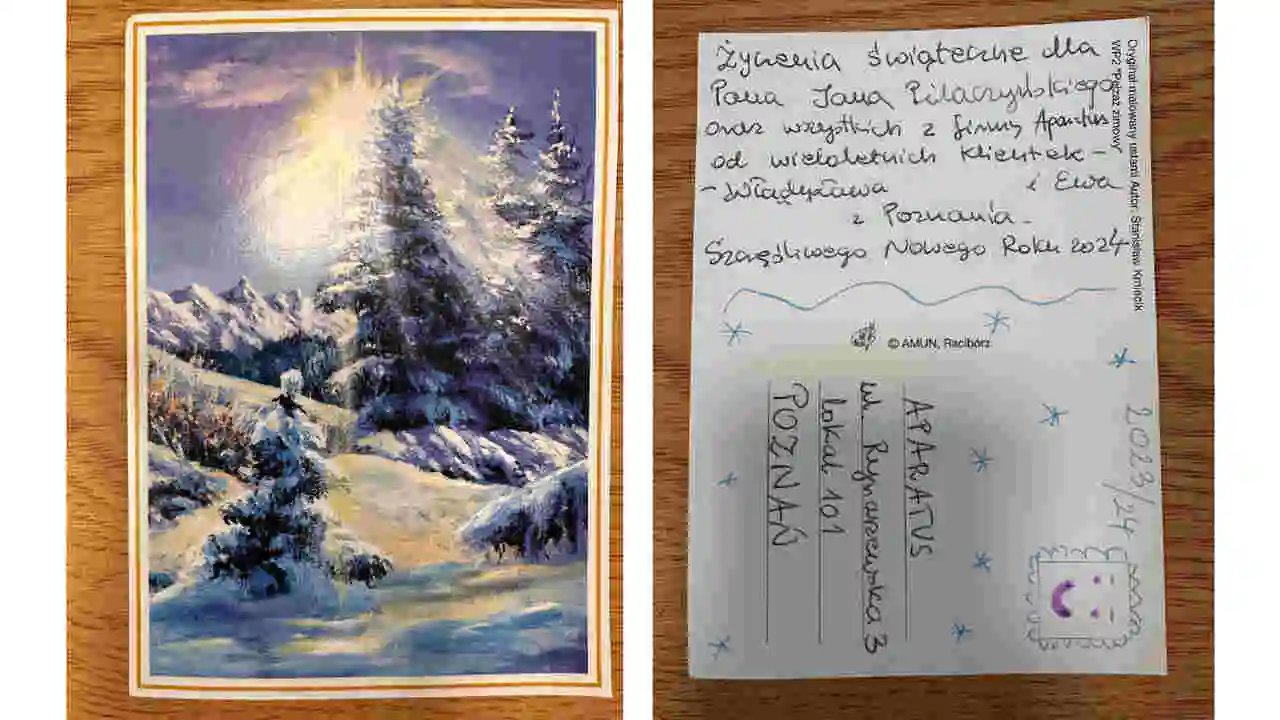 Życzenia świąteczne dla
Pana Jana Pilaczyńskiego
oraz wszystkich z firmy Aparatus
od wieloletnich klientek -
- Władysława i Ewa
z Poznania -
Szczęśliwego Nowego Roku 2024
Oryginał malowany ustami Autor: Stanisław Kmiecik
WP2 "Pejzaż zimowy"
© AMUN, Racibórz
2023/24
APARATUS
ul. Rynarzewska 3
lokal 101
POZNAŃ